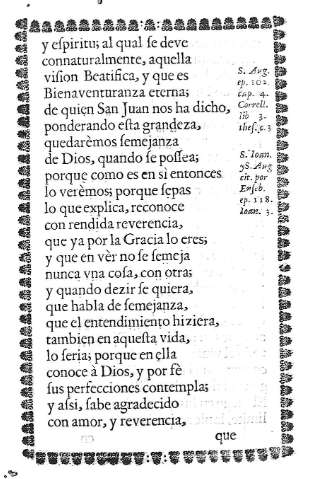 y eſpiritu; al qual ſe deve
connaturalmente, aquella
viſion Beatifica, y que es
Bienaventuranza eterna;
de quien San Juan nos ha dicho,
ponderando eſta grandeza,
quedarèmos ſemejanza
de Dios, quando ſe poſſea;
porque como es en si entonces
lo verèmos; porque ſepas
lo que explica, reconoce
con rendida reverencia,
que ya por la Gracia lo eres;
y que en vèr no ſe ſemeja
nunca vna coſa, con otra;
y quando dezir ſe quiera,
que habla de ſemejanza,
que el entendimiento hiziera,
tambien en aqueſta vida,
lo ſeria; porque en ella
conoce à Dios, y por fè
ſus perfecciones contempla;
y aſsi, ſabe agradecido
con amor, y reverencia,
que
S. Aug.
ep. 102.
cap. 4.
Correll.
lib 3.
theſ. c. 3
S. Ioan.
S. Aug
cit. por
Euſeb.
ep. 118.
Ioan. 3.